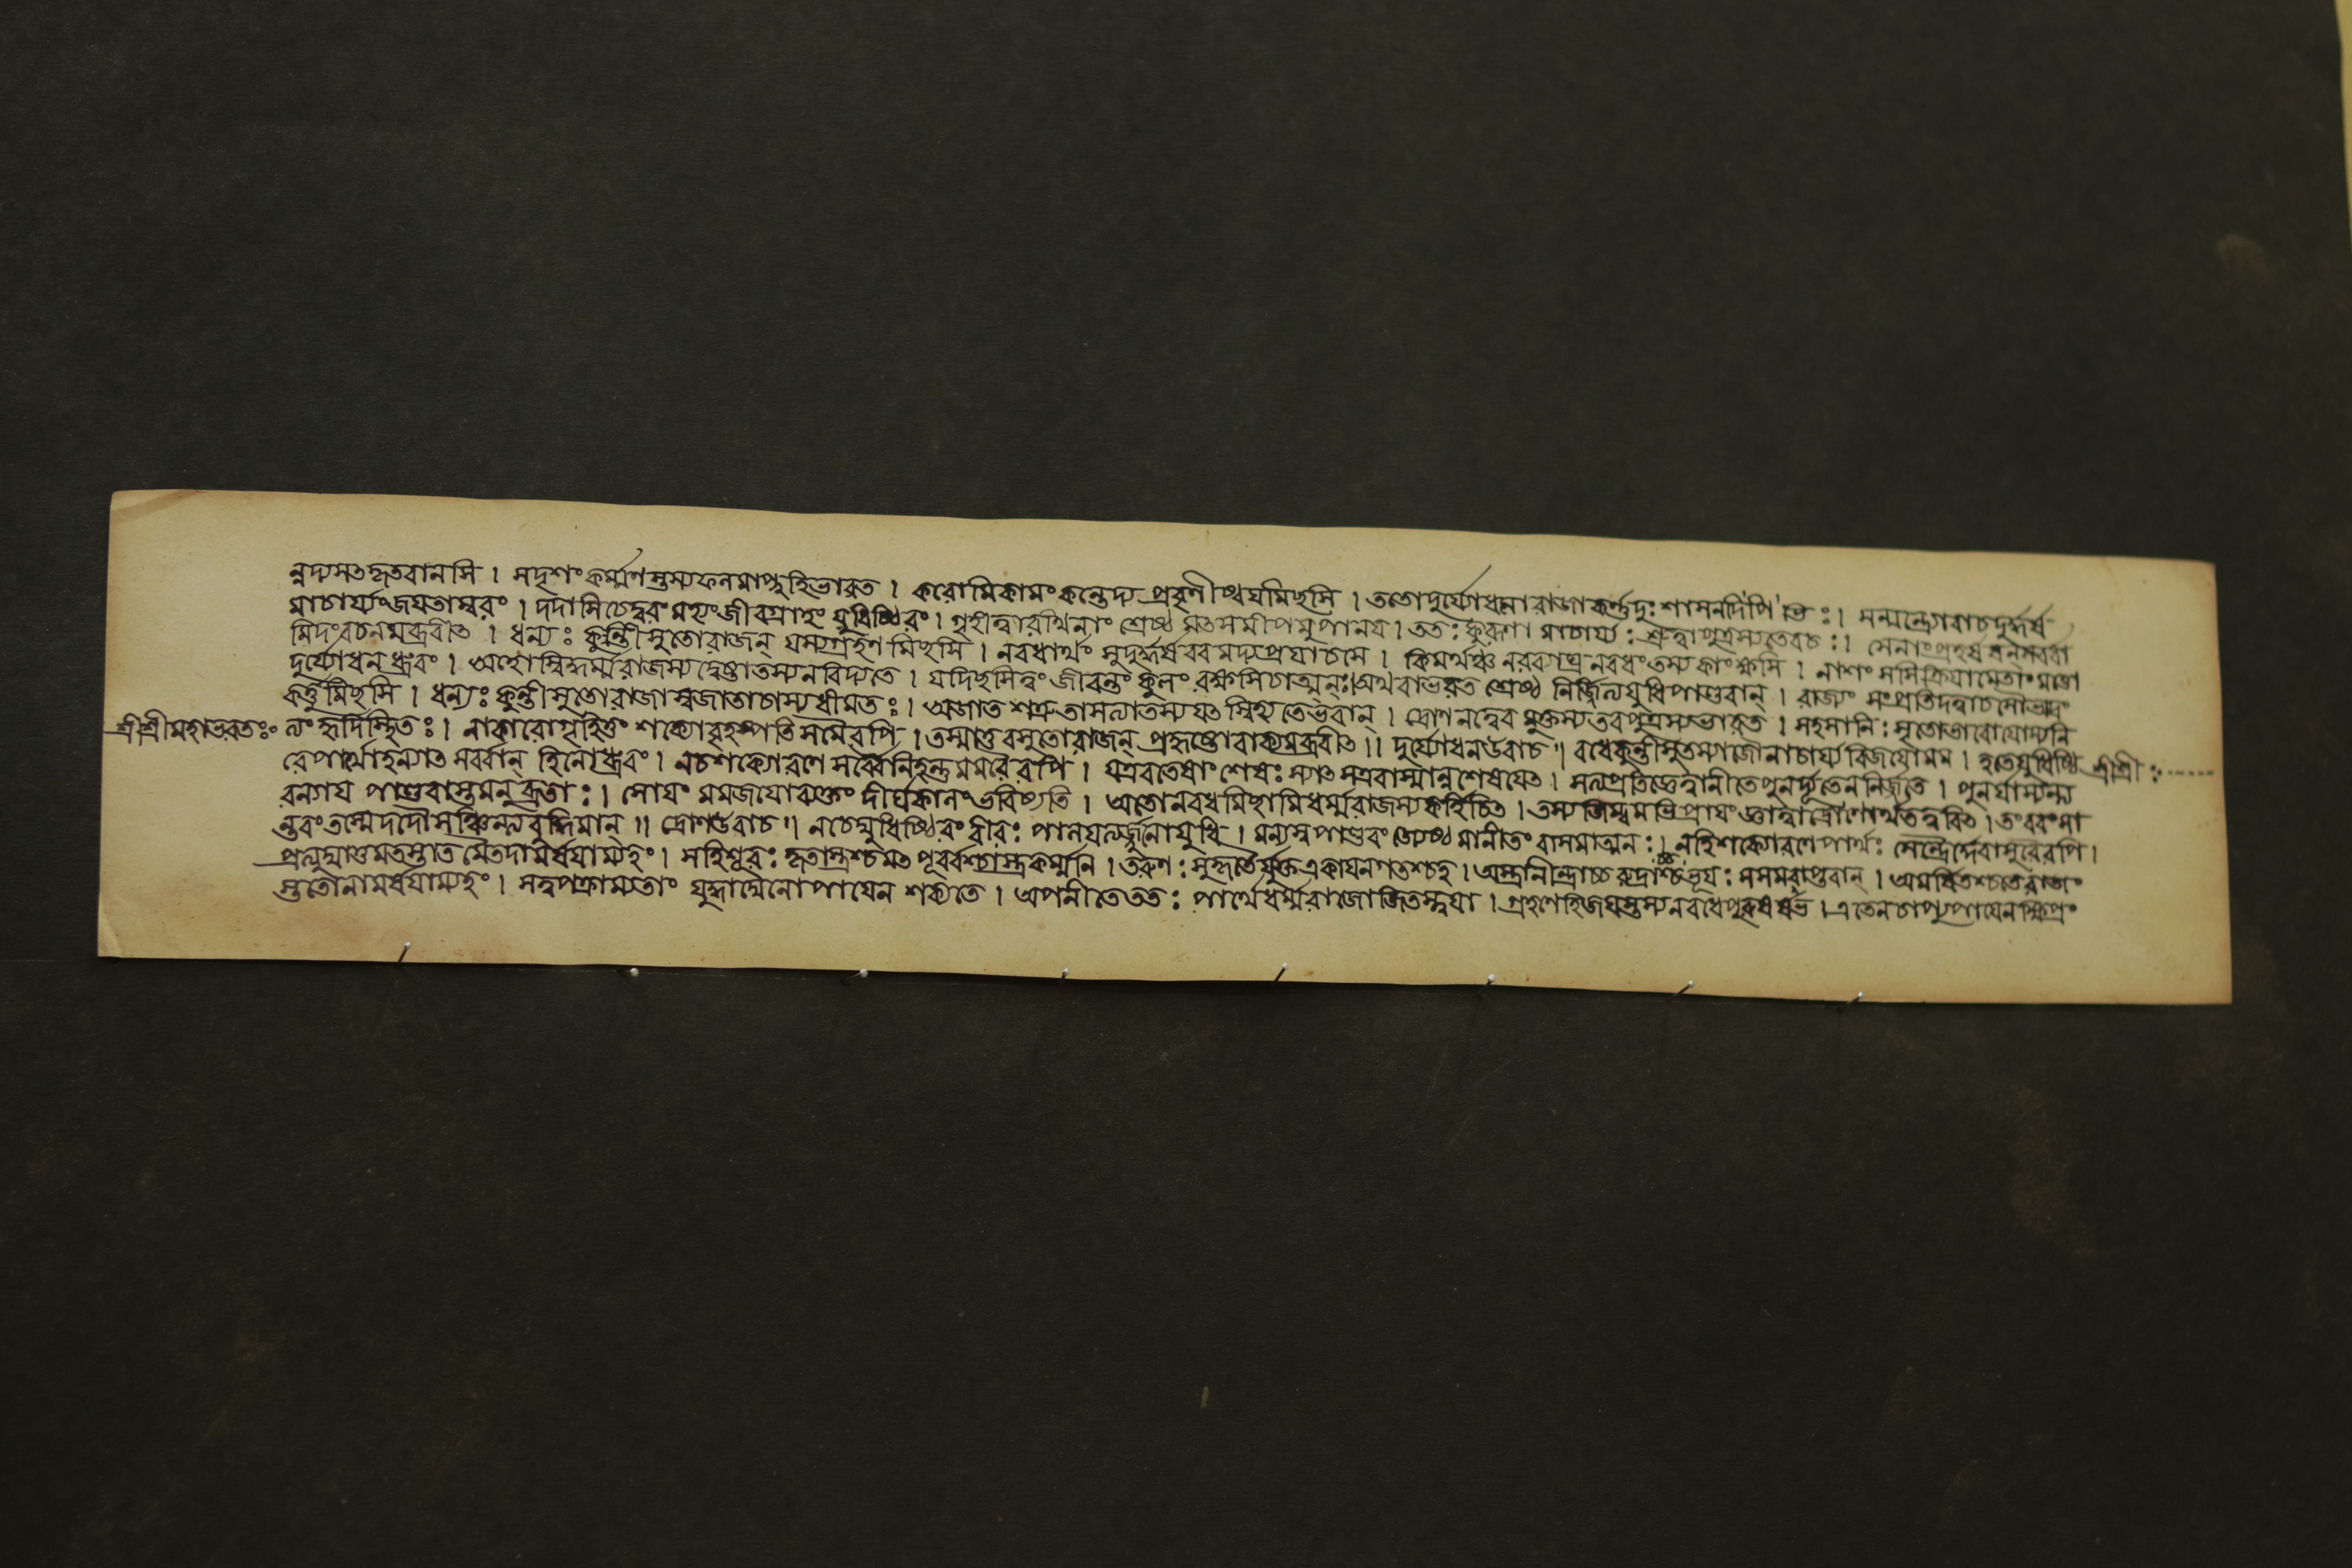 ন্নদ্যসৎকৃতবানসি । সদৃশং কর্ম্মণস্তস্যফলমাপ্নুহিভারত । করোমিকামং কন্তেদ্য প্রবৃণীষ্বযমিছসি । ততোদুর্য্যোধনোরাজা কর্ণদুঃশাসনাদিভিঃ ।
মাচার্য্যংজযতাম্বরং । দদাসিচেদ্বরং মহ্যং জীবগ্রাহং যুধিষ্ঠিরং । গৃহীত্বারথিনাং শ্রেষ্ঠ মৎসমীপমুপানয । ততঃ কুরূণা মাচার্য্যঃ শ্রুত্বাপুত্রস্যতেবচঃ । সেনাংপ্রহর্ষ
মিদংবচনমব্রবীৎ । ধন্যঃ কুন্তীসুতোরাজন্ যস্যগ্রহণ মিছসি । নবধার্থং সুদুর্দ্ধর্ষ বরমদ্যপ্রযাচসে । কিমর্থঞ্চ নরব্যাঘ্র নবধংতস্য কাংক্ষসি । নাশং
দুর্য্যোধন ধ্রুবং । অহোস্বিদ্ধর্ম্মরাজস্য দ্বেষ্টাতস্যনবিদ্যতে । যদিছসিত্বং জীবন্তং কুলং রক্ষসিচাত্মনঃ । অথবাভরত শ্রেষ্ঠ নির্জ্জিত্যযুধিপাণ্ডবান্ । রাজ্যং সংপ্রতিদত্বাচসৌভ্রাত্রং
কর্ত্তুমিছসি । ধন্যঃ কুন্তীসুতোরাজা সুজাতাচাস্যধীমতঃ । অজাত শত্রুতাসত্যাতস্য যৎ স্নিহ্যতেভবান্ । দ্রোণেনত্বেব মুক্তস্য তবপুত্রস্যভারত । সহসানিঃসৃতোভাবোযোস্যনি
শ্রীশ্রীমহাভরতঃ ত্যং হৃদিস্থিতঃ । নাকারোগূহিতুং শক্যোবৃহস্পতি সমৈরপি । তস্মাত্তবসুতোরাজন্ প্রহৃষ্টোবাক্যমব্রবীৎ ।। দুর্য্যোধনউবাচ ।। বধেকুন্তীসুতস্যাজৌনাচার্য্যবিজযোমম । হতেযুধিষ্ঠি শ্রীশ্রীঃ
রেপার্থোহন্যাৎ সর্ব্বান্ হিনোধ্রুবং । নচশক্যোরণে সর্ব্বেনিহন্তুমমরৈরপি । যএবতেষাং শেষঃ স্যাৎ সএবাস্মান্নশেষযেৎ । সত্যপ্রতিজ্ঞেত্বানীতেপুনর্দ্যূতেননির্জ্জিতে । পুনর্যাস্যন্ত্য
রণ্যায পাণ্ডবাস্তমনুব্রতাঃ । সোযং মমজযোব্যক্তং দীর্ঘকালংভবিষ্যতি । অতোনবধমিছামিধর্ম্মরাজস্যকর্হিচিৎ । তস্যজিহ্মমভিপ্রাযং জ্ঞাত্বাদ্রোণোর্থতত্ত্ববিৎ । তংবরংসা
ন্তরং তস্মৈদদৌসঞ্চিন্ত্যবুদ্ধিমান্ ।। দ্রোণউবাচ ।। নচেদ্যুধিষ্ঠিরং বীরঃ পালযত্যর্জ্জুনোযুধি । মন্যস্বপাণ্ডবং জ্যেষ্ঠ মানীতং বাসমাত্মনঃ । নহিশক্যোরণেপার্থঃ সেন্দ্রৈর্দ্দেবাসুরৈরপি ।
প্রত্যুদ্যাতুমতস্তাত মৈতদামর্ষযাম্যহং । সহিশূরঃ কৃতাস্ত্রশ্চমৎ পূর্ব্বশ্চাস্ত্রকর্ম্মনি । তরুণঃ সুকৃতৈর্যুক্ত একাযনগতশ্চহ । অস্ত্রানীন্দ্রাচ্চ রুদ্রাচ্চভূযঃ সসমবাপ্তবান্ । অমর্ষিতশ্চতেরাজং
স্ততোনামর্ষযাম্যহং । সত্বপক্রাম্যতাং যুদ্ধাদ্যেনোপাযেন শক্যতে । অপনীতেততঃ পার্থেধর্ম্মরাজোজিতস্ত্বযা । গ্রহণেহিজযস্তস্য নবধেপুরুষর্ষভ । এতেনচাপ্যুপাযেনক্ষিপ্রং